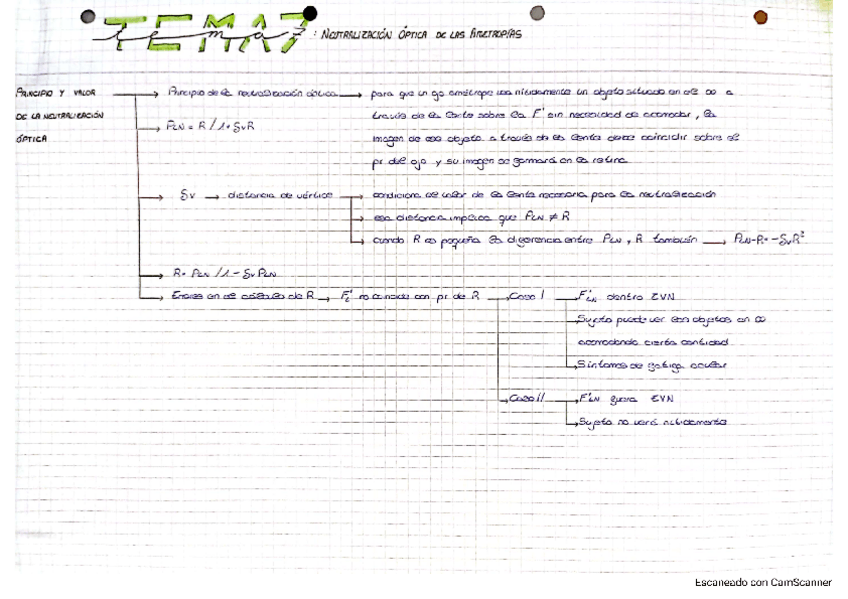 TEMA 7
tema 7 : NEUTRALIZACIÓN ÓPTICA DE LAS AMETROPÍAS
PRINCIPIO Y VALOR
DE LA NEUTRALIZACIÓN
ÓPTICA
Principio de la neutralización óptica → para que un ojo amétrope vea nítidamente un objeto situado en el ∞ a
través de la lente sobre la F' sin necesidad de acomodar, la
imagen de ese objeto a través de la lente debe coincidir sobre el
pr del ojo y su imagen se formará en la retina
PLN = R / 1 + δvR
δv → distancia de vértice → condiciona el valor de la lente necesaria para la neutralización
esa distancia implica que PLN ≠ R
cuando R es pequeña la diferencia entre PLN y R también → PLN-R = -δvR²
R = PLN / 1 - δvPLN
Errores en el cálculo de R → F'L no coincide con pr de R → Caso I → F'LN dentro IVN
Sujeto puede ver con objetos en ∞
acomodando cierta cantidad
Síntomas de fatiga ocular
Caso II → F'LN fuera IVN
Sujeto no verá nítidamente
Escaneado con CamScanner